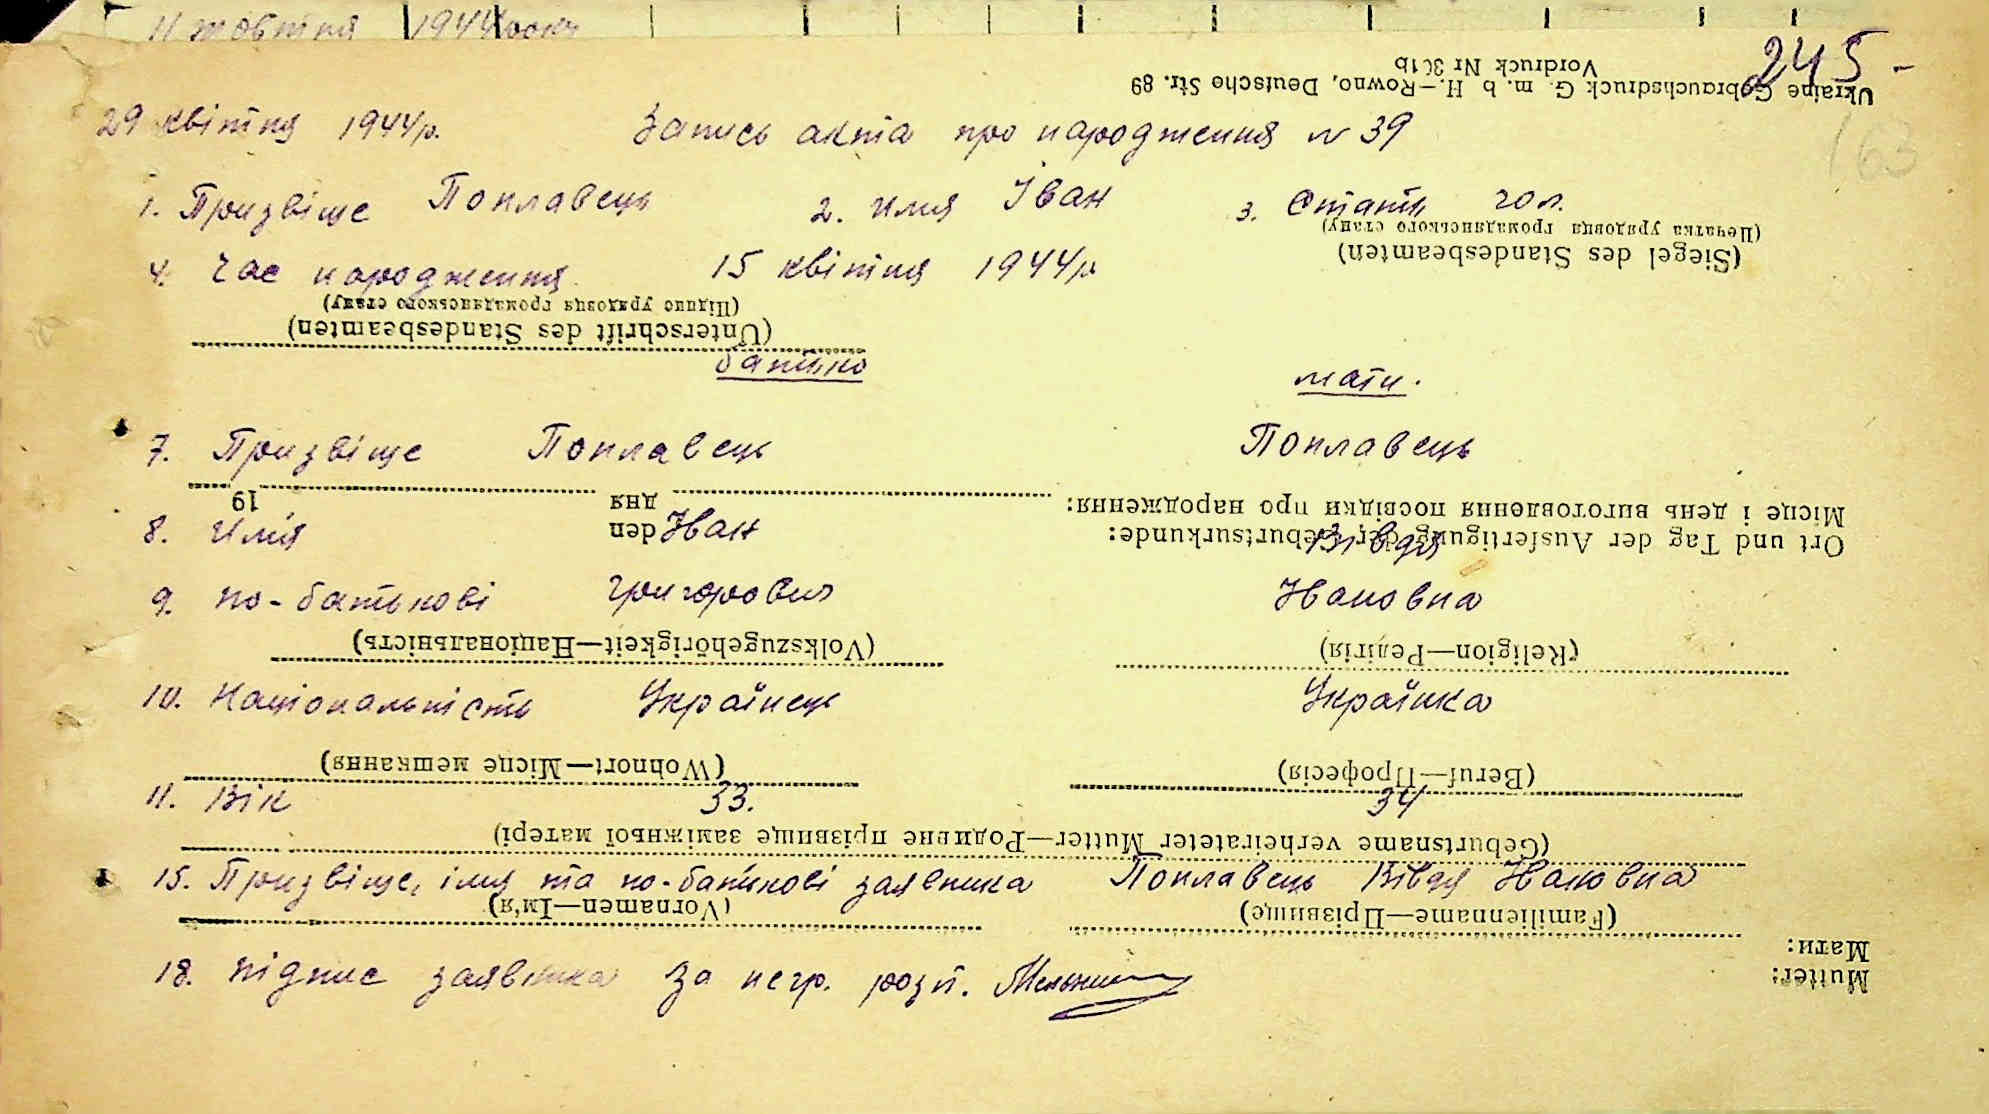 11 жовтня 1944 року
245-
Ukraine Gebrauchsdruck G. m. b. H.—Rowno, Deutsche Str. 89
Vordruck Nr 301b
163
29 квітня 1944 р. Запись акта про народження N 39
1. Призвіще Поплавець 2. Имя Іван 3. Стать чол.
(Siegel des Standesbeamten)
(Печатка урядовця громадянського стану)
4. Час народження 15 квітня 1944 р
(Unterschrift des Standesbeamten)
(Підпис урядовця громадянського стану)
батько мати.
7. Призвіще Поплавець Поплавець
Ort und Tag der Ausfertigung der Geburtsurkunde:
Місце і день виготовлення посвідки про народження:
den
дня 19
8. Имя Іван Вівдя
9. по-батькові Григорович Івановна
(Religion—Релігія) (Volkszugehörigkeit—Національність)
10. Національність Українець Українка
(Beruf—Професія) (Wohnort—Місце мешкання)
11. Вік 33. 34
(Geburtsname verheirateter Mutter—Родинне прізвище заміжньої матері)
15. Призвіще, імя та по-батькові заявника Поплавець Вівдя Івановна
(Familienname—Прізвище) (Vornamen—Ім'я)
Mutter:
Мати:
18. підпис заявника За негр. розп. Мельник